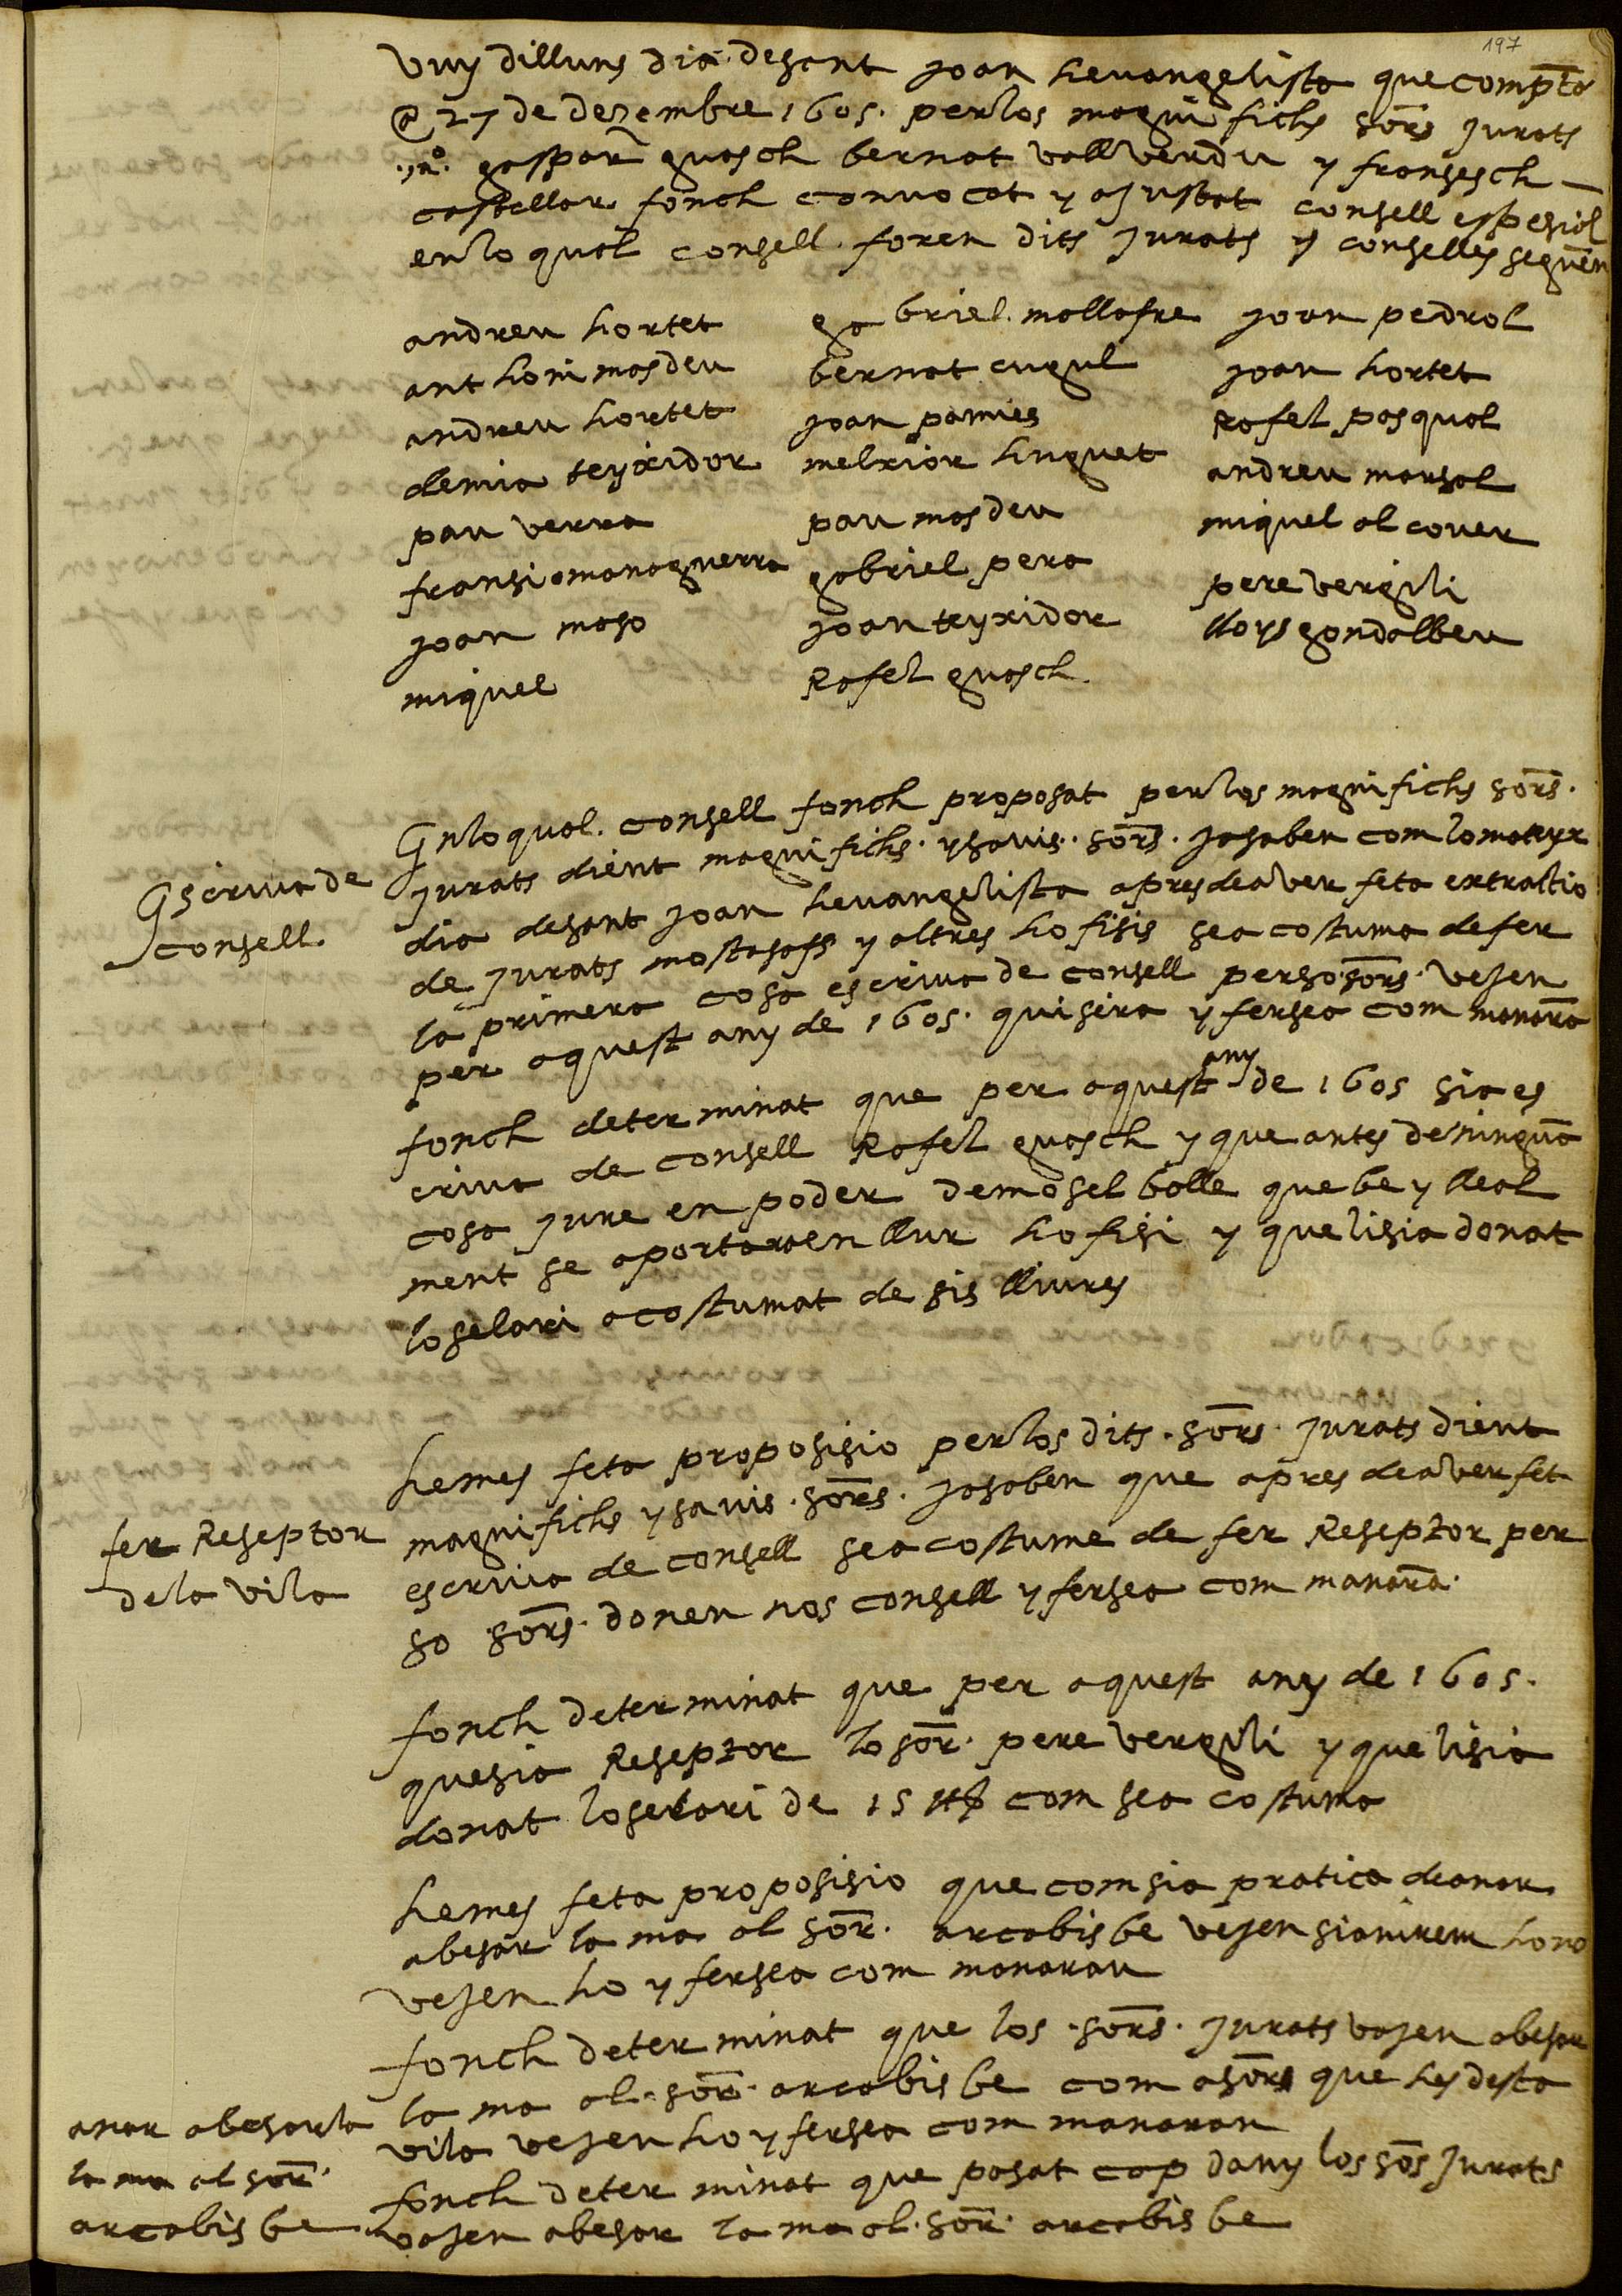 197
vuy dilluns dia desant joan hevangelista que comptã
@ 27 de dezembre 1605. perlos magnifichs sõrs jurats
.mº. gaspar guasch bernat vallverdu y fransesch
castellar fonch convocat y ajustat consell espesial
enlo qual consell foren dits jurats y consellés seguēn
andreu hortet
anthoni masdeu
andreu hortet
demia teyxidor
pau verra
fransi amanaguerra
joan maso
miquel
gabriel mallafre
bernat cugul
joan pamies
melxior huguet
pau masdeu
gabriel pera
joan teyxidor
Rafel guasch
joan pedrol
joan hortet
Rafel pasqual
andreu marsal
miquel alcover
pere vergili
lloys gondalbeu
Enlo qual consell fonch proposat perlos magnifichs sõrs.
jurats dient magnifichs ysavis. sõrs. jasaben com lomateyx
dia desant joan hevangelista apres deaver feta extractio
de jurats mostasaff y altres hofisis sea costuma defer
la primera cosa escriva de consell perso sõrs. vejen
per aquest any de 1605. quisira yfersea com manarã
Escriva de
consell.
fonch determinat que per aquest any de 1605 sia es
criva de consell Rafel guasch y que antes deninguã
cosa jure en poder demosel balle que be y lleal
ment se aportaraen llur hofisi y quelisia donat
loselari acostumat de sis lliures
hemes feta proposisio perlos dits. sõrs. jurats dient
magnifichs ysavis. sõrs. jasaben que apres deaver fet
escriva de consell sea costume de fer Reseptor per
so sõrs. donen nos consell yfersea com manarã.
fer Reseptor
dela vila
fonch determinat que per aquest any de 1605.
quesia Reseptor lo sõr. pere vergili y quelisia
donat loselari de 15 ℔ com sea costuma
hemes feta proposisio que comsia pratica deanar
abesar la ma al sõr. arcabisbe vejen sianirem hono
vejen ho yfersea com manaran
fonch determinat que los. sõrs. jurats vajen abesar
la ma al. sõr. arcabisbe com asõrs que hes desta
vila vejenho yfersea com manaran
fonch determinat que pasat cap dany los sõs jurats
vajen abesar la ma al. sõr. arcabisbe
anar abesarla
la ma al sõr.
arcabisbe